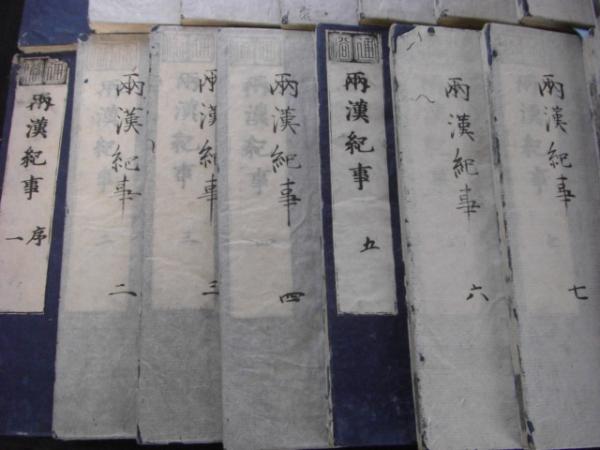 通俗
兩漢紀事 序一
兩漢紀事 二
兩漢紀事 三
兩漢紀事 四
通俗
兩漢紀事 五
兩漢紀事 六
兩漢紀事 七